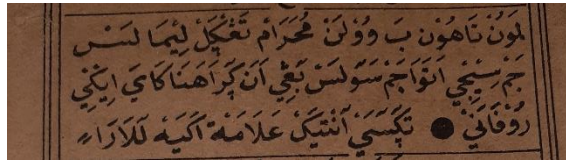 لَمَوُنْ تَاهُوْنْ بَ وُوْلَنْ مُحَرَامْ تَڠْكَلْ لِيْمَا لَسْ
جَمْ سِيْجِي اَتَوَا جَمْ سَوَلَسْ بَڠِي اَنَ كَرَاهَنَا كَايَ اِيْكِي
رُوْفَانَيْ ● تَكَسَيْ اَنْتِيْكَ عَلَامَةْ اَكَيَهْ لَلَارَا